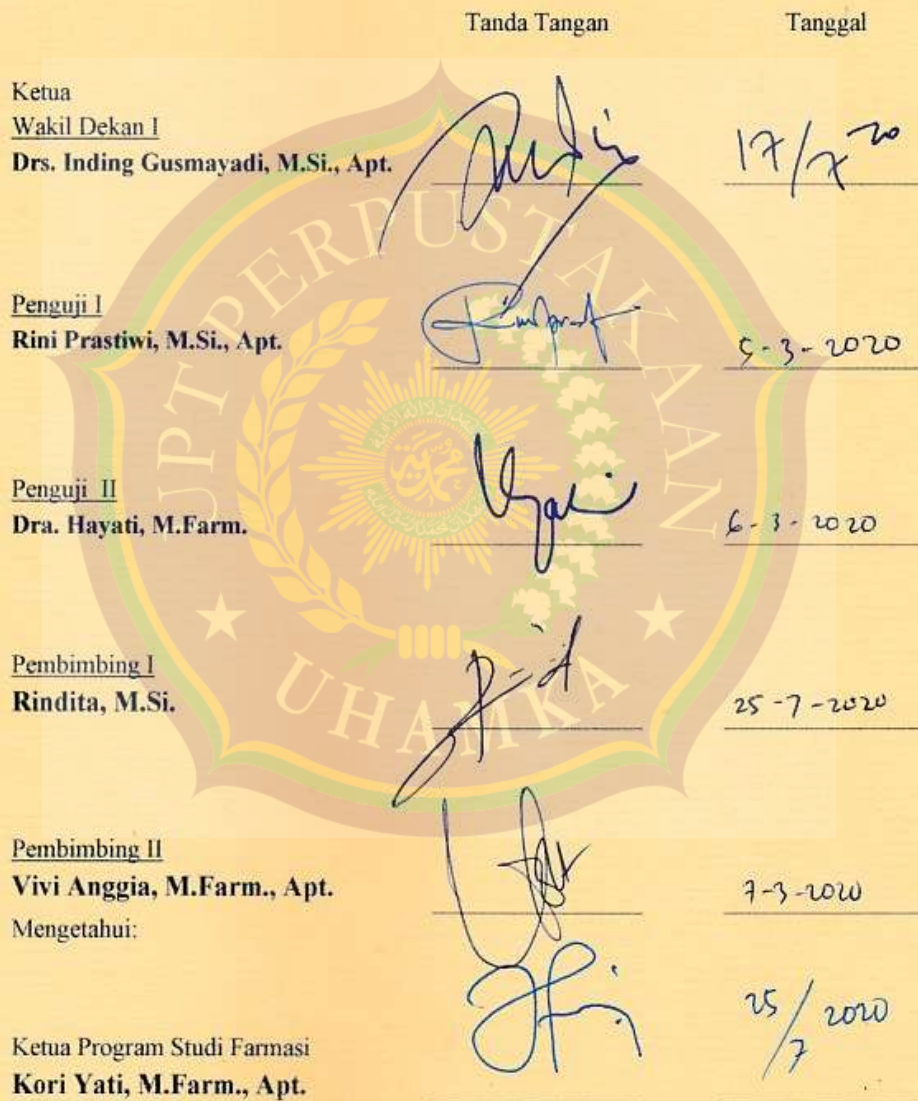 Tanda Tangan Tanggal
Ketua
Wakil Dekan I
Drs. Inding Gusmayadi, M.Si., Apt. 17/7 20
Penguji I
Rini Prastiwi, M.Si., Apt. 5-3-2020
Penguji II
Dra. Hayati, M.Farm. 6-3-2020
Pembimbing I
Rindita, M.Si. 25-7-2020
Pembimbing II
Vivi Anggia, M.Farm., Apt. 7-3-2020
Mengetahui:
Ketua Program Studi Farmasi 25/7 2020
Kori Yati, M.Farm., Apt.
UPT PERPUSTAKAAN
UHAMKA
محمدية